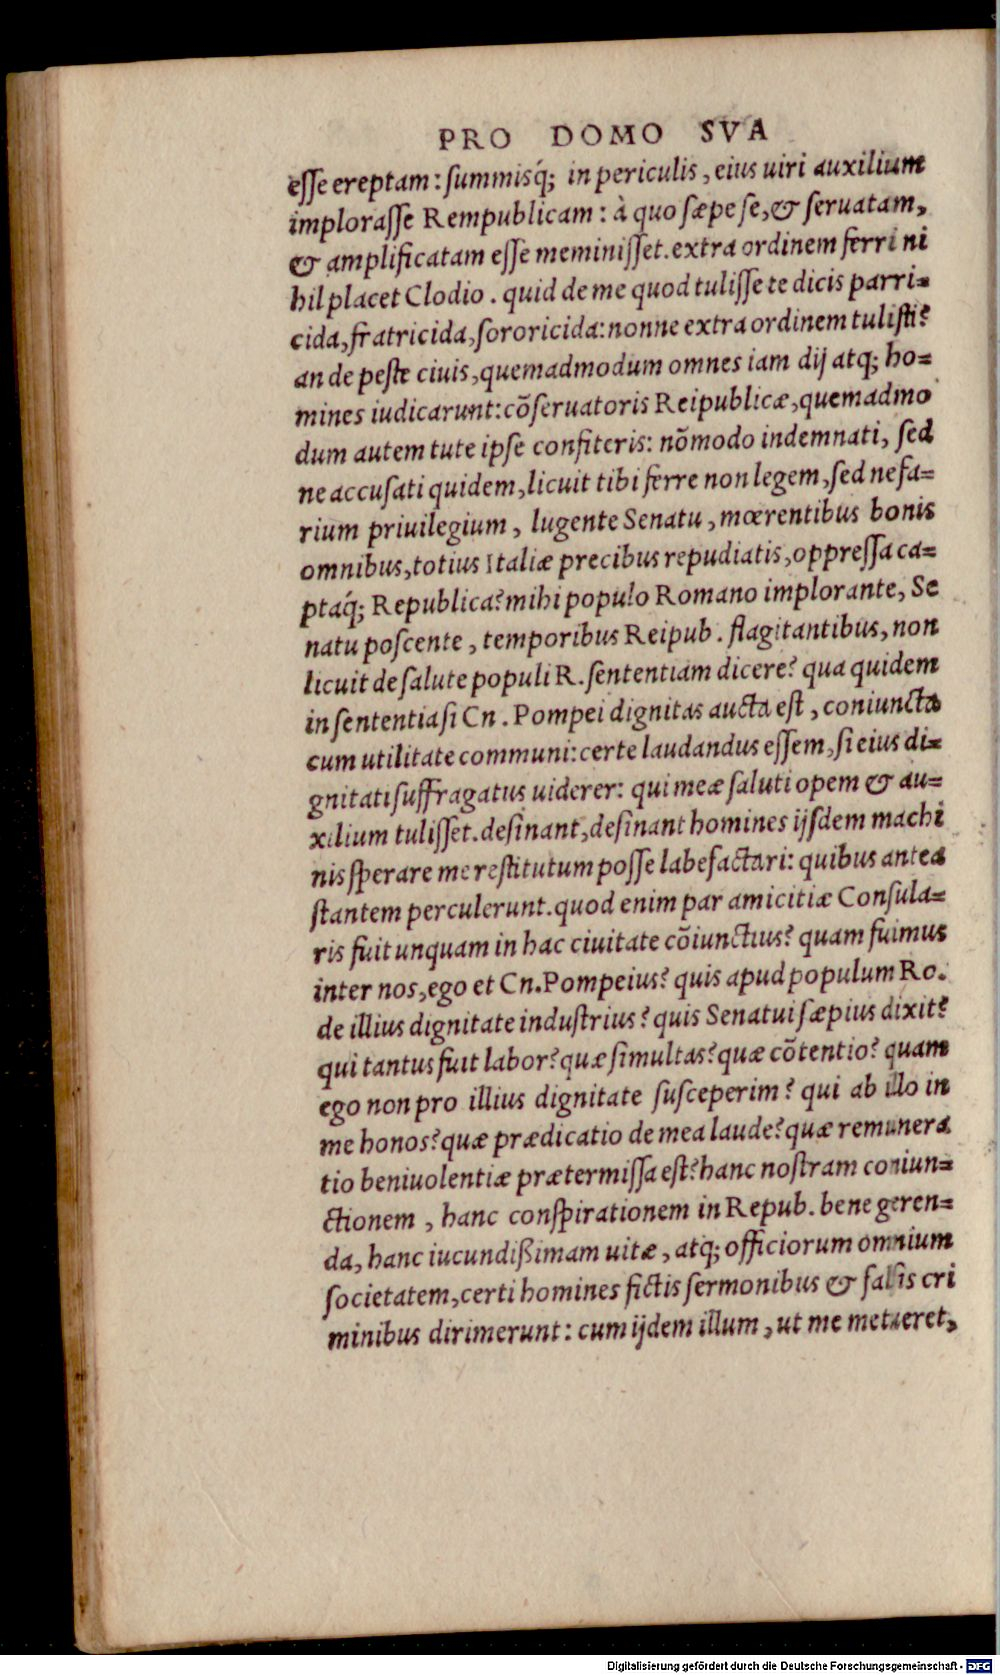 PRO DOMO SVA
esse ereptam: summisq́; in periculis, eius uiri auxilium
implorasse Rempublicam: à quo sæpe se, & seruatam,
& amplificatam esse meminisset. extra ordinem ferri ni
hil placet Clodio. quid de me quod tulisse te dicis parri=
cida, fratricida, sororicida: nonne extra ordinem tulisti?
an de peste ciuis, quemadmodum omnes iam dij atq; ho=
mines iudicarunt: cõseruatoris Reipublicæ, quemadmo
dum autem tute ipse confiteris: nõmodo indemnati, sed
ne accusati quidem, licuit tibi ferre non legem, sed nefa=
rium priuilegium, lugente Senatu, mœrentibus bonis
omnibus, totius Italiæ precibus repudiatis, oppressa ca=
ptaq́; Republica? mihi populo Romano implorante, Se
natu poscente, temporibus Reipub. flagitantibus, non
licuit de salute populi R. sententiam dicere? qua quidem
in sententia si Cn. Pompei dignitas aucta est, coniuncta
cum utilitate communi: certe laudandus essem, si eius di=
gnitati suffragatus uiderer: qui meæ saluti opem & au=
xilium tulisset. desinant, desinant homines ijsdem machi
nis sperare me restitutum posse labefactari: quibus antea
stantem perculerunt. quod enim par amicitiæ Consula=
ris fuit unquam in hac ciuitate cõiunctius? quam fuimus
inter nos, ego et Cn. Pompeius? quis apud populum Ro.
de illius dignitate industrius? quis Senatui sæpius dixit?
qui tantus fuit labor? quæ simultas? quæ cõtentio? quam
ego non pro illius dignitate susceperim? qui ab illo in
me honos? quæ prædicatio de mea laude? quæ remunera
tio beniuolentiæ prætermissa est? hanc nostram coniun=
ctionem, hanc conspirationem in Repub. bene geren=
da, hanc iucundißimam uitæ, atq; officiorum omnium
societatem, certi homines fictis sermonibus & falsis cri
minibus dirimerunt: cum ijdem illum, ut me metueret,
Digitalisierung gefördert durch die Deutsche Forschungsgemeinschaft - DFG